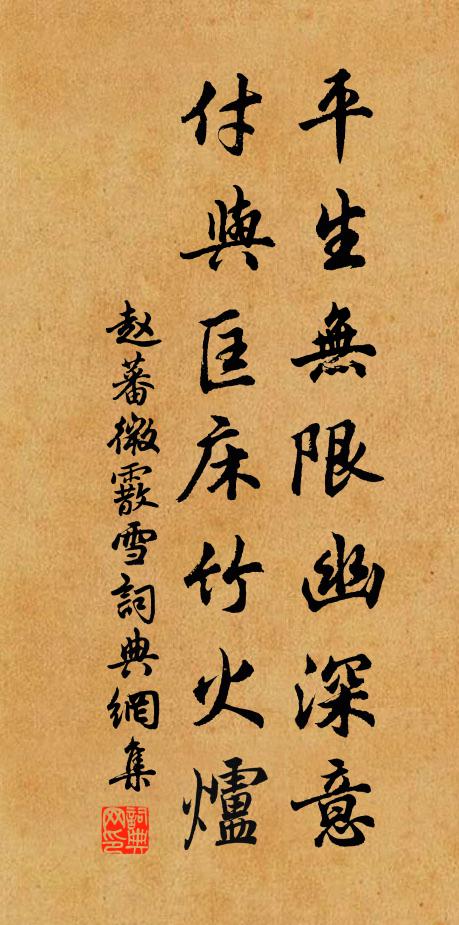 平生無限幽深意
付與匡床竹火爐
赵蕃微霰雪詞典網集
詞典网印